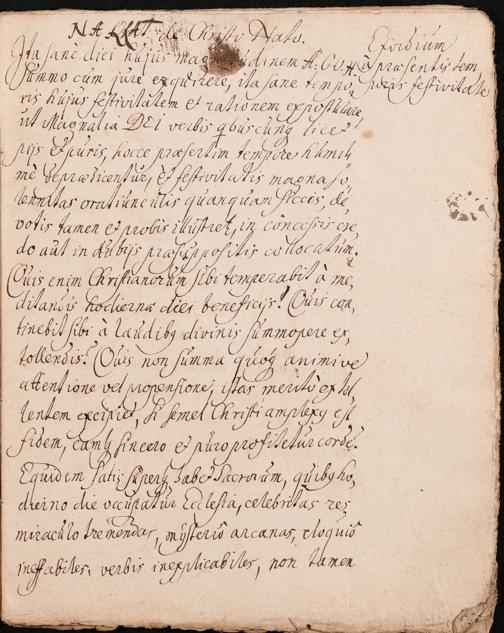 de Christo Nato.
Exordium
à præsentis tem
poris festivitate
Ita sane diei hujus magnitudinem A. G.
summo cum jure exqvirere, ita sane tempo,
ris hujus festivitatem et rationem expostulare,
ut Magnalia DEI verbis qvibuscunq licet
pijs et puris, hocce præsertim tempore humili,
me deprædicentur, et festivitatis magna so,
lennitas oratiunculis quanquam siccis, de,
votis tamen et probis illustret, in concessis cre,
do aut in dubijs præsuppositis collocatum.
Qvis enim Christianorum sibi temperabit à me,
ditandis hodiernæ diei beneficijs? Qvis con,
tinebit sibi à laudibq divinis summopere ex,
tollendis? Qvis non summa quoq animi vi et
attentione vel propensione, istas merito extol
lentem excipiet, si semel Christi amplexq est
fidem, eamq sincero et puro profitetur corde.
Eqvidem satis superq habet Sacrorum, quibq ho,
dierno die occupatur Ecclesia, celebritas res
miraculo tremendas, mysterio arcanas, eloquio
ineffabiles, verbis inexplicabiles, non tamen